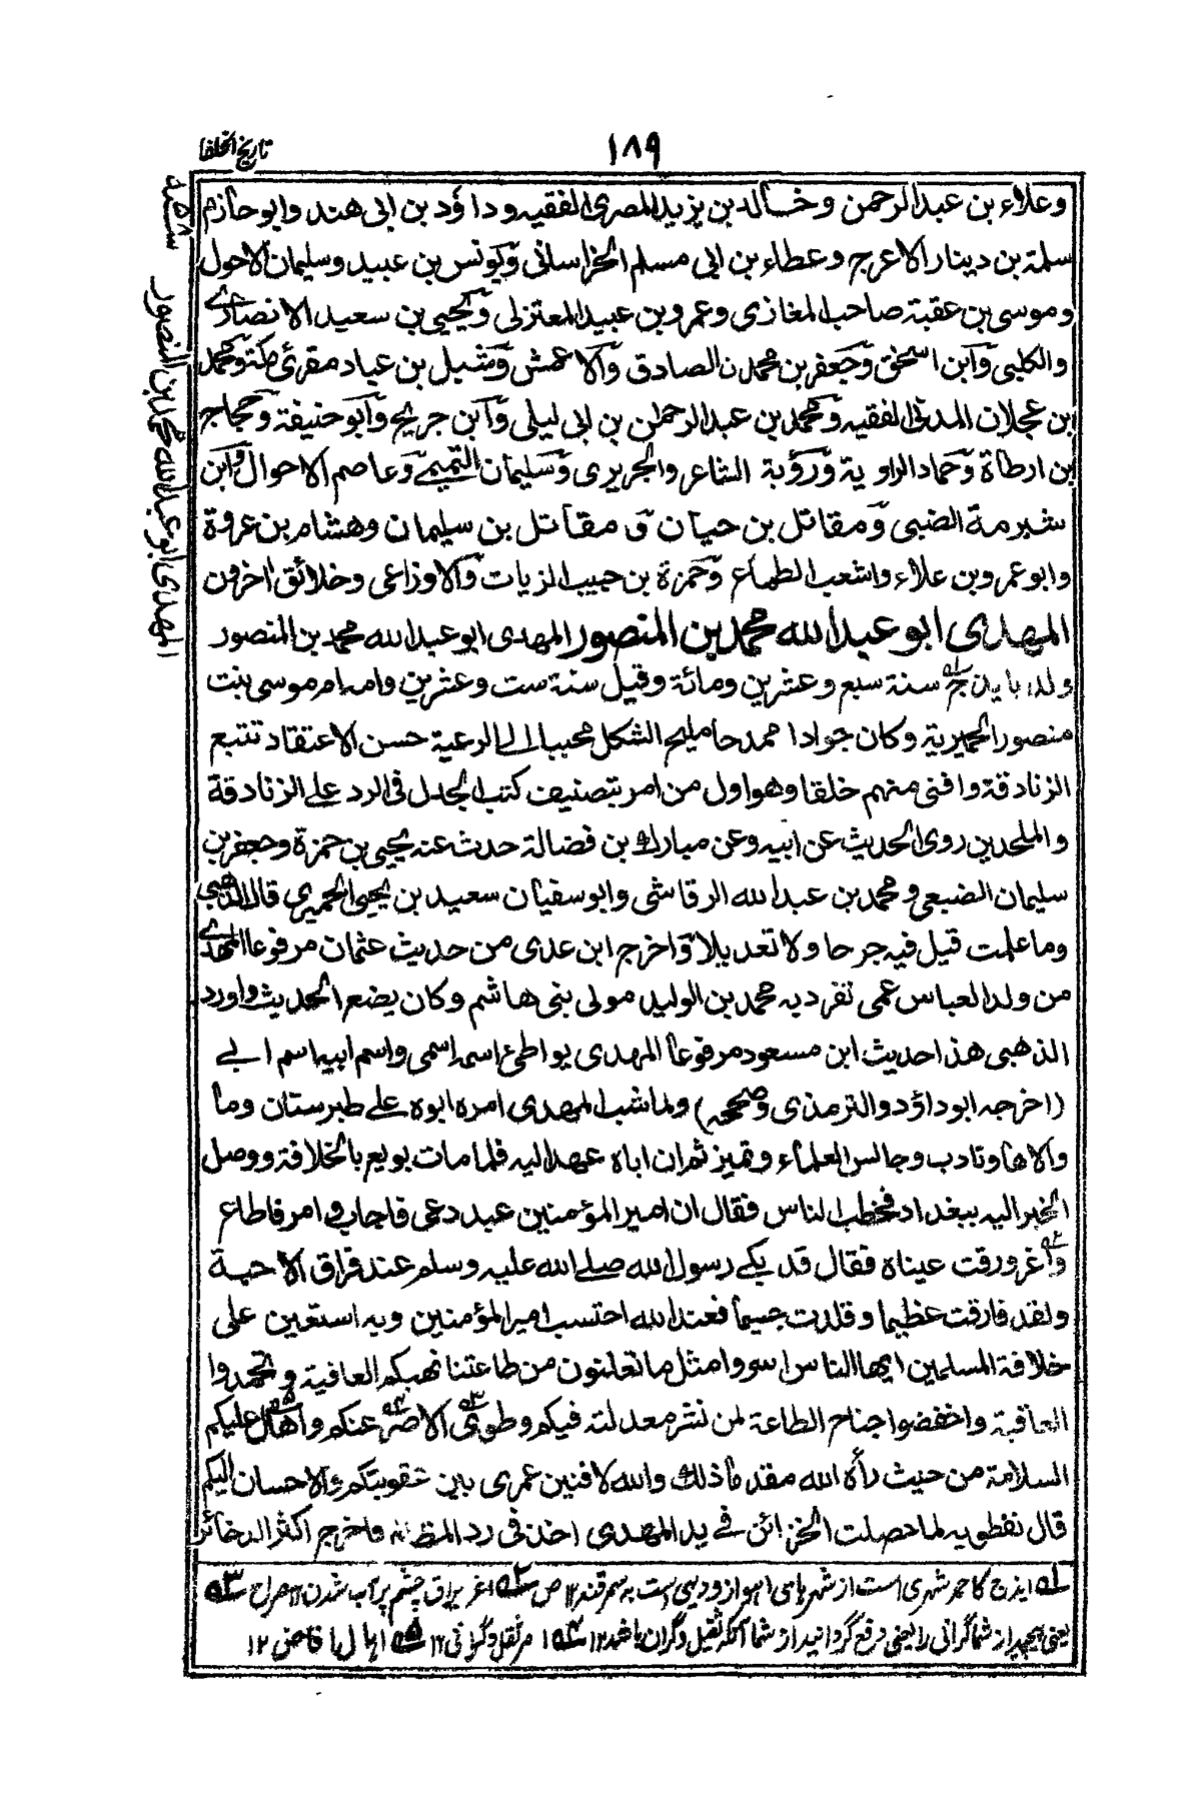 تاريخ الخلفا
١٨٩
وعلاء بن عبد الرحمن وخالد بن يزيد المصرى الفقيه وداؤد بن ابى هند وابو حازم
سلمة بن دينار الاعرج وعطاء بن ابى مسلم الخراسانى ويونس بن عبيد وسليمان الاحول
وموسى بن عقبة صاحب المغازى وعمرو بن عبيد المعتزلى ويحيى بن سعيد الانصارى
والكلبى وابن اسحق وجعفر بن محمد ن الصادق والاعمش وشبل بن عباد مقرئ مكة ومحمد
ابن عجلان المدنى الفقيه ومحمد بن عبد الرحمان بن ابى ليلى وابن جريج وابو حنيفة وحجاج
ابن ارطاة وحماد الراوية ورؤبة الشاعر والجريرى وسليمان التميمى وعاصم الاحوال وابن
شبرمة الضبى ومقاتل بن حيان و مقاتل بن سليمان وهشام بن عروة
وابو عمرو بن علاء واشعب الطماع وحمزة بن حبيب الزيات والاوزاعى وخلائق اخرون
المهدى ابو عبد الله محمد بن المنصور المهدى ابو عبد الله محمد بن المنصور
ولد بايذج سنة سبع وعشرين ومائة وقيل سنة ست وعشرين وامه ام موسى بنت
منصور الحميرية وكان جوادا ممدحا مليح الشكل محببا الى الرعية حسن الاعتقاد تتبع
الزنادقة وافنى منهم خلقا وهو اول من امر بتصنيف كتب الجدل فى الرد على الزنادقة
والملحدين روى الحديث عن ابيه وعن مبارك بن فضالة حدث عنه يحيى بن حمزة وجعفر بن
سليمان الضبعى ومحمد بن عبد الله الرقاشى وابو سفيان سعيد بن يحيى الحميرى قال الذهبى
وما علمت قيل فيه جرحا ولا تعديلا واخرج ابن عدى من حديث عثمان مرفوعا المهدى
من ولد العباس عمى تفرد به محمد بن الوليد مولى بنى هاشم وكان يضع الحديث واورد
الذهبى هذا حديث ابن مسعود مرفوعا المهدى يواطئ اسمه اسمى واسم ابيه اسم ابى
(اخرجه ابو داؤد والترمذى وصححه) ولما شب المهدى امره ابوه على طبرستان وما
والاها وتادب وجالس العلماء وتميز ثم ان اباه عهد اليه فلما مات بويع بالخلافة ووصل
الخبر اليه ببغداد فخطب الناس فقال ان امير المؤمنين عبد دعى فاجاب وامر فاطاع
واغرورقت عيناه فقال قد بكى رسول الله صلى الله عليه وسلم عند فراق الاحبة
ولقد فارقت عظيما وقلدت جسيما فعند الله احتسب امير المؤمنين وبه استعين على
خلافة المسلمين ايها الناس اسروا مثل ما تعلنون من طاعتنا نهبكم العافية وتحمدوا
العاقبة واخفضوا جناح الطاعة لمن نشر معدلته فيكم وطوى الاصر عنكم واهال عليكم
السلامة من حيث رأه الله مقدما ذلك والله لافنين عمرى بين عقوبتكم والاحسان اليكم
قال نفطويه لما حصلت الخزائن فى يد المهدى اخذ فى رد المظالم فاخرج اكثر الذخائر
المهدى ابو عبد الله محمد بن المنصور
١٥٨
سنه
ايذج كاحمد شهرى است از شهر هاى اهواز وديهى است به سمرقند ١٢ ص اغريراق چشم پر آب شدن ١٢ صراح
يعنى از شما گرانى را يعنى رفع گردانيد از شما آنكه ثقيل وگران باشد ١٢ ثقل وگرانى ١٢